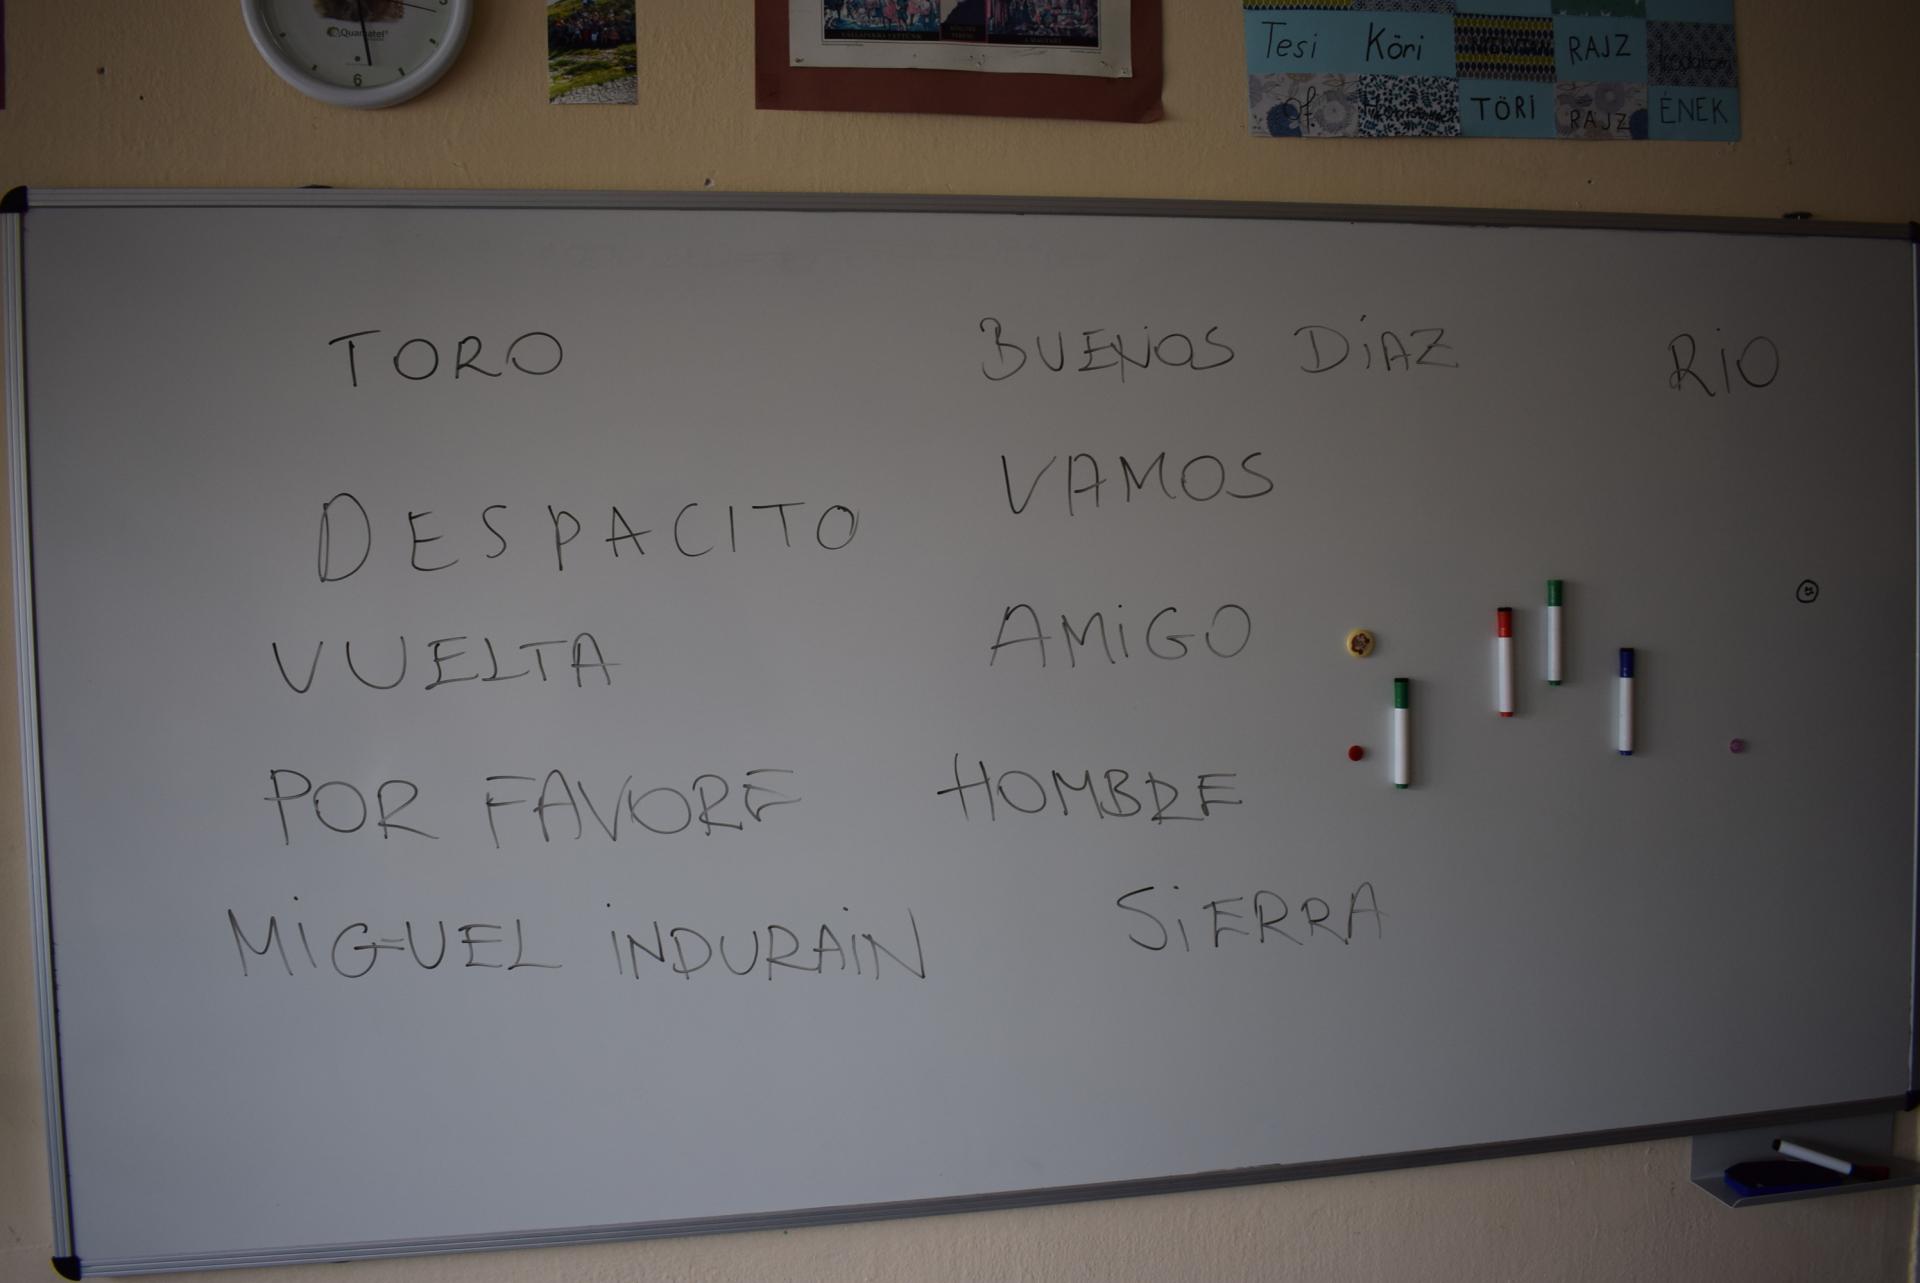 Quamatel
6
Tesi Köri RAJZ
Of. TÖRI RAJZ ÉNEK
TORO
BUENOS DíAZ
RiO
DESPACITO
VAMOS
VUELTA
AMiGO
POR FAVORE
HOMBRE
MiGUEL iNDURAiN
SiERRA